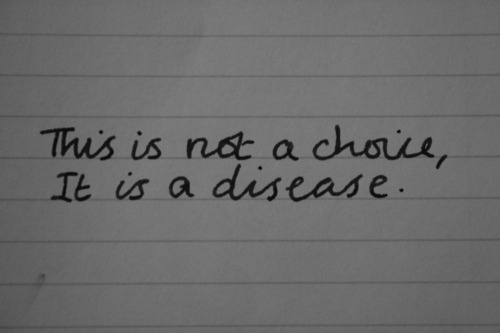 This is not a choice,
It is a disease.